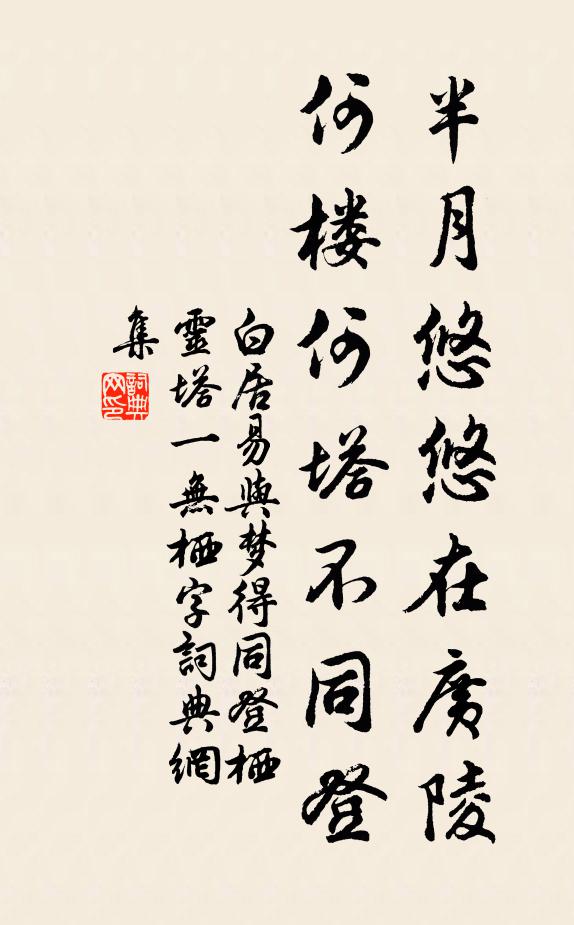 半月悠悠在廣陵
何楼何塔不同登
白居易與梦得同登栖
靈塔一無栖字詞典網
集
詞典网印